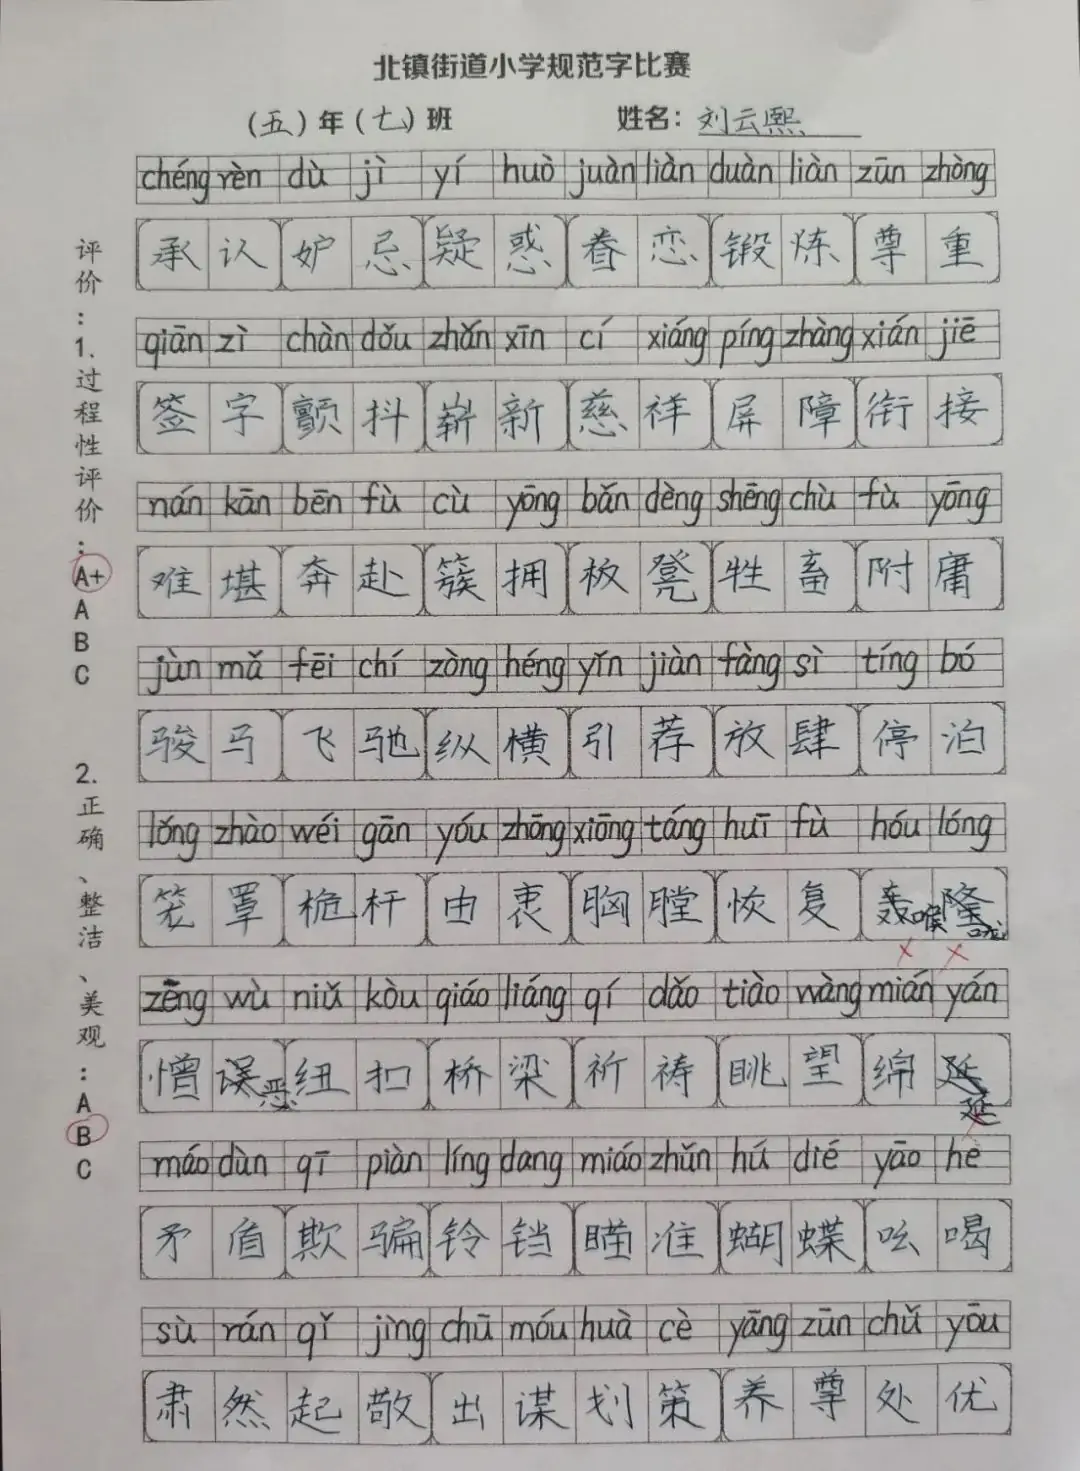 北镇街道小学规范字比赛
（五）年（七）班 姓名：刘云熙
chéng rèn dù jì yí huò juàn liàn duàn liàn zūn zhòng
承认 妒忌 疑惑 眷恋 锻炼 尊重
qiān zì chàn dǒu zhǎn xīn cí xiáng píng zhàng xián jiē
签字 颤抖 崭新 慈祥 屏障 衔接
nán kān bēn fù cù yōng bǎn dèng shēng chù fù yōng
难堪 奔赴 簇拥 板凳 牲畜 附庸
jùn mǎ fēi chí zòng héng yǐn jiàn fàng sì tíng bó
骏马 飞驰 纵横 引荐 放肆 停泊
lǒng zhào wéi gān yóu zhōng xiōng táng huī fù hóu lóng
笼罩 桅杆 由衷 胸膛 恢复 轰隆
喉 咙
zēng wù niǔ kòu qiáo liáng qí dǎo tiào wàng mián yán
憎误 纽扣 桥梁 祈祷 眺望 绵延
恶 延
máo dùn qī piàn líng dang miáo zhǔn hú dié yāo hè
矛盾 欺骗 铃铛 瞄准 蝴蝶 吆喝
sù rán qǐ jìng chū móu huà cè yāng zūn chǔ yōu
肃然起敬 出谋划策 养尊处优
评价：1.过程性评价：A+ A B C
2.正确、整洁、美观：A B C